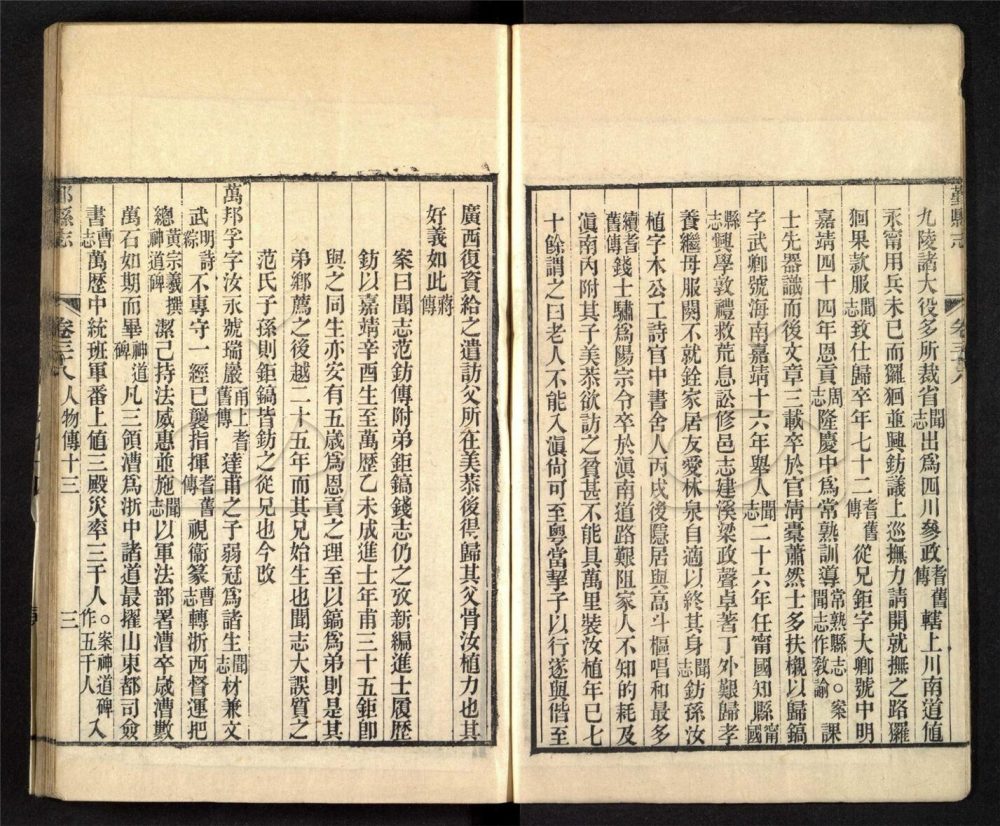 鄞縣志
卷三十八
九陵諸大役多所裁省聞志出爲四川參政耆舊傳轄上川南道値
永甯用兵未已而玀狪並興鈁議上巡撫力請開就撫之路玀
狪果款服聞志致仕歸卒年七十二耆舊傳從兄鉅字大卿號中明
嘉靖四十四年恩貢周志隆慶中爲常熟訓導常熟縣志○案聞志作敎諭課
士先器識而後文章三載卒於官淸槖蕭然士多扶櫬以歸鎬
字武卿號海南嘉靖十六年舉人聞志二十六年任甯國知縣甯國
縣志興學敦禮救荒息訟修邑志建溪梁政聲卓著丁外艱歸孝
養繼母服闋不就銓家居友愛林泉自適以終其身聞志鈁孫汝
植字木公工詩官中書舍人丙戌後隱居與高斗樞唱和最多
續耆舊傳錢士驌爲陽宗令卒於滇南道路艱阻家人不知的耗及
滇南內附其子美恭欲訪之貧甚不能具萬里裝汝植年已七
十餘謂之曰老人不能入滇尙可至粤當挈子以行遂與偕至
廣西復資給之遣訪父所在美恭後得歸其父骨汝植力也其
好義如此蔣傳
案曰聞志范鈁傳附弟鉅鎬錢志仍之攷新編進士履歷
鈁以嘉靖辛酉生至萬歷乙未成進士年甫三十五鉅卽
與之同生亦安有五歲爲恩貢之理至以鎬爲弟則是其
弟鄕薦之後越二十五年而其兄始生也聞志大誤質之
范氏子孫則鉅鎬皆鈁之從兄也今改
萬邦孚字汝永號瑞巖甬上耆舊傳達甫之子弱冠爲諸生聞志材兼文
武明詩綜不專守一經已襲指揮耆舊傳視衞篆曹志轉浙西督運把
總黃宗羲撰神道碑潔己持法威惠並施聞志以軍法部署漕卒歲漕數
萬石如期而畢神道碑凡三領漕爲浙中諸道最擢山東都司僉
書曹志萬歷中統班軍番上値三殿災率三千人○案神道碑作五千人入
縣志
卷三十八 人物傳十三
三